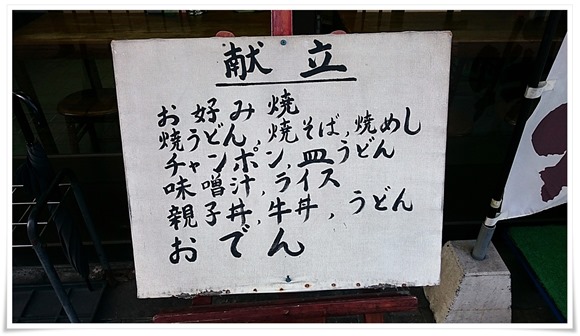 献立
お好み焼
焼うどん,焼そば,焼めし
チャンポン,皿うどん
味噌汁,ライス
親子丼,牛丼,うどん
おでん